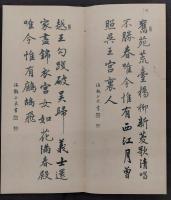 舊苑荒臺楊柳新菱歌清唱
不勝春唯今惟有西江月曾
照吳王宮裏人
越王勾踐破吳歸義士還
家盡錦衣宮女如花滿春殿
唯今惟有鷓鴣飛